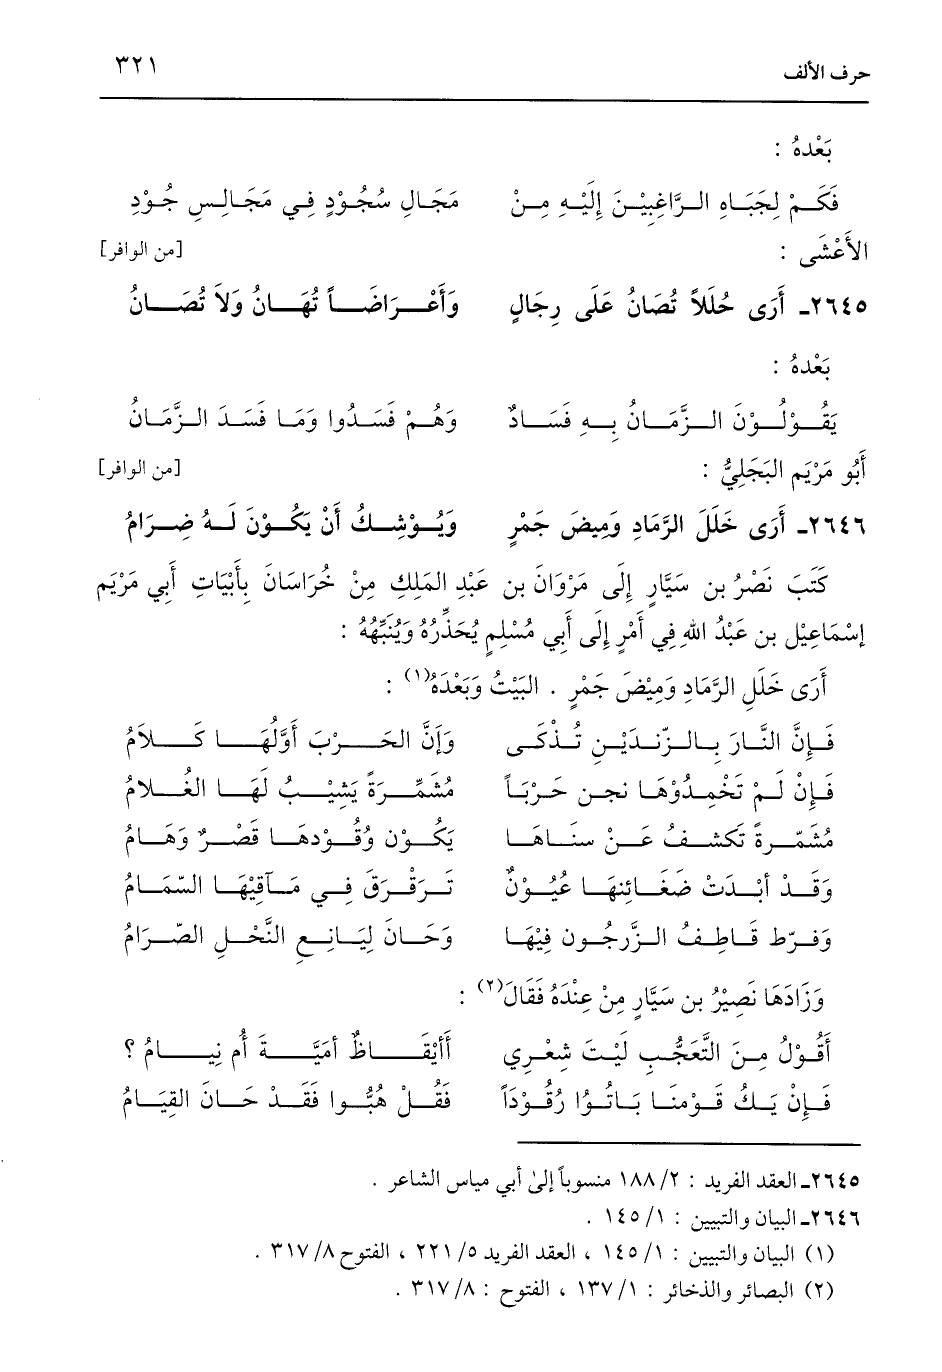 حرف الألف ٣٢١
بَعْدهُ :
فَكَمْ لِجَبَاهِ الرَّاغِبِيْنَ إِلَيْهِ مِنْ مَجَالِ سُجُوْدٍ فِي مَجَالِسِ جُوْدِ
الأَعْشَى : [من الوافر]
٢٦٤٥ـ أَرَى حُلَلاً تُصَانُ عَلَى رِجَالٍ وَأَعْرَاضَاً تُهَانُ وَلاَ تُصَانُ
بَعْدهُ :
يَقُوْلُوْنَ الزَّمَانُ بِهِ فَسَادٌ وَهُمْ فَسَدُوا وَمَا فَسَدَ الزَّمَانُ
أَبُو مَرْيَم البَجَلِيُّ : [من الوافر]
٢٦٤٦ـ أَرَى خَلَلَ الرَّمَادِ وَمِيضَ جَمْرٍ وَيُوْشِكُ أَنْ يَكُوْنَ لَهُ ضِرَامُ
كَتَبَ نَصْرُ بن سَيَّارٍ إِلَى مَرْوَانَ بن عَبْدِ المَلِكِ مِنْ خُرَاسَانَ بِأَبْيَاتِ أَبِي مَرْيَم
إِسْمَاعِيْل بن عَبْدُ اللهِ فِي أَمْرٍ إِلَى أَبِي مُسْلِمٍ يُحَذِّرُهُ وَيُنَبِّهُهُ :
أَرَى خَلَلِ الرَّمَادِ وَمِيْضَ جَمْرٍ . البَيْتُ وَبَعْدَهُ(١) :
فَإِنَّ النَّارَ بِالزّندَيْنِ تُذْكَى وَإِنَّ الحَرْبَ أَوَّلُهَا كَلاَمُ
فَإِنْ لَمْ تَخْمِدُوْهَا نجن حَرْبَاً مُشَمِّرَةً يَشِيْبُ لَهَا الغُلاَمُ
مُشَمِّرةً تكشفُ عَنْ سنَاهَا يَكُوْن وُقُوْدهَا قَصْرٌ وَهَامُ
وَقَدْ أَبْدَتْ ضَغَائنهَا عُيُوْنٌ تَرَقْرَقَ فِي مَآقِيْهَا السّمَامُ
وَفرّط قَاطِفُ الزَّرجُون فِيْهَا وَحَانَ لِيَانِعِ النَّخْلِ الصّرَامُ
وَزَادَهَا نَصِيْرُ بن سَيَّارٍ مِنْ عِنْدَهُ فَقَالَ(٢) :
أَقُوْلُ مِنَ التَّعَجُّبِ لَيْتَ شِعْرِي أَأَيْقَاظٌ أُمَيَّةَ أَم نِيَامُ ؟
فَإِنْ يَكُ قَوْمنَا بَاتُوْا رُقُوْدَاً فَقُلْ هُبُّوا فَقَدْ حَانَ القِيَامُ
٢٦٤٥ـ العقد الفريد : ٢/ ١٨٨ منسوباً إلىٰ أبي مياس الشاعر .
٢٦٤٦ـ البيان والتبيين : ١/ ١٤٥ .
(١) البيان والتبيين : ١/ ١٤٥ ، العقد الفريد ٥/ ٢٢١ ، الفتوح ٨/ ٣١٧ .
(٢) البصائر والذخائر : ١/ ١٣٧ ، الفتوح : ٨/ ٣١٧ .